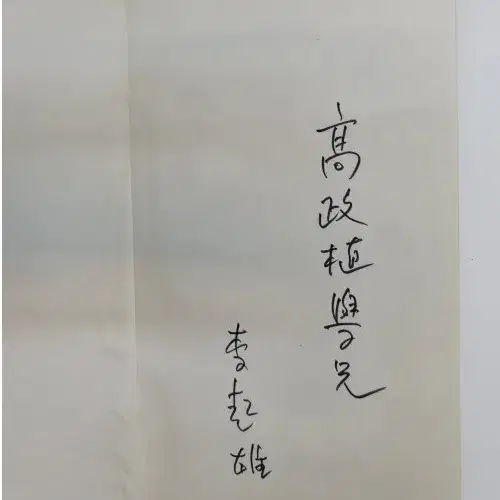 高政植學兄
李起雄